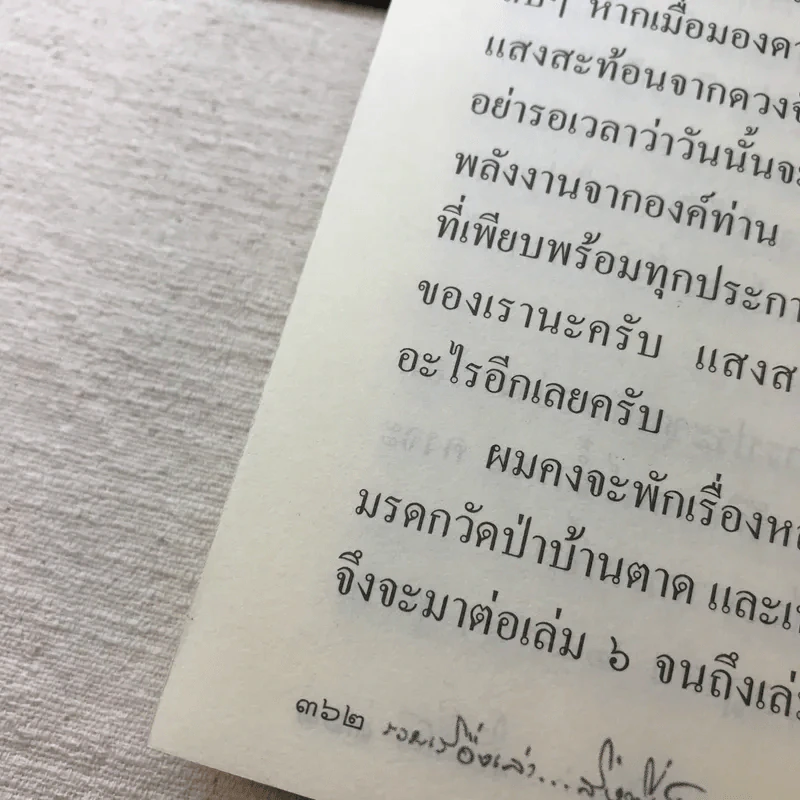 หากเมื่อมองดา
แสงสะท้อนจากดวงจั
อย่ารอเวลาว่าวันนั้นจะ
พลังงานจากองค์ท่าน
ที่เพียบพร้อมทุกประกา
ของเรานะครับ แสงส
อะไรอีกเลยครับ
ผมคงจะพักเรื่องหล
มรดกวัดป่าบ้านตาด และเห
จึงจะมาต่อเล่ม ๖ จนถึงเล่ม
๓๖๒ รวมเรื่องเล่า...